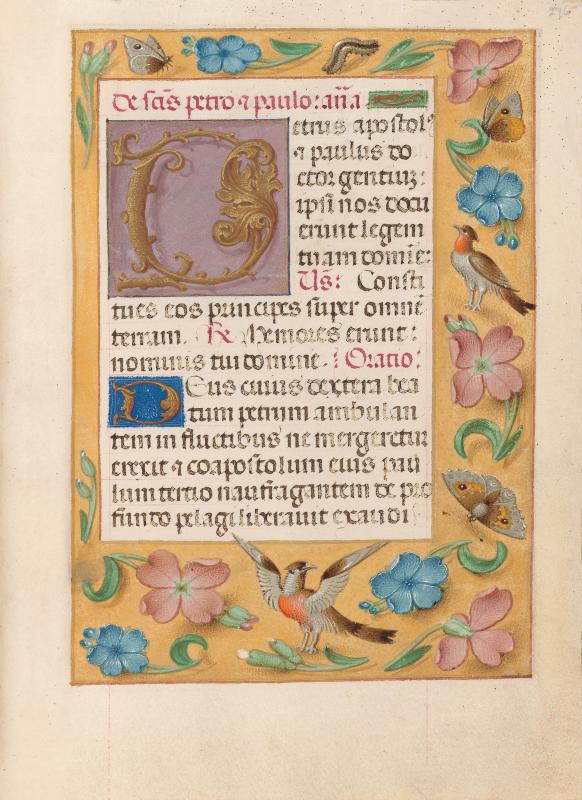 De sc̄is petro ⁊ paulo: an̄a
Petrus apostolꝰ
⁊ paulus do
ctor gentiuꝫ:
ipsi nos docu
erunt legem
tuam domīe:
Us̄: Consti
tues eos principes super omnē
terram. ℞ Memores erunt:
nominis tui domine. Oratio:
Deus cuius dextera bea
tum petrum ambulan
tem in fluctibus ne mergeretur
erexit ⁊ coapostolum eius pau
lum tertio naufragantem de pro
fundo pelagi liberauit exaudi